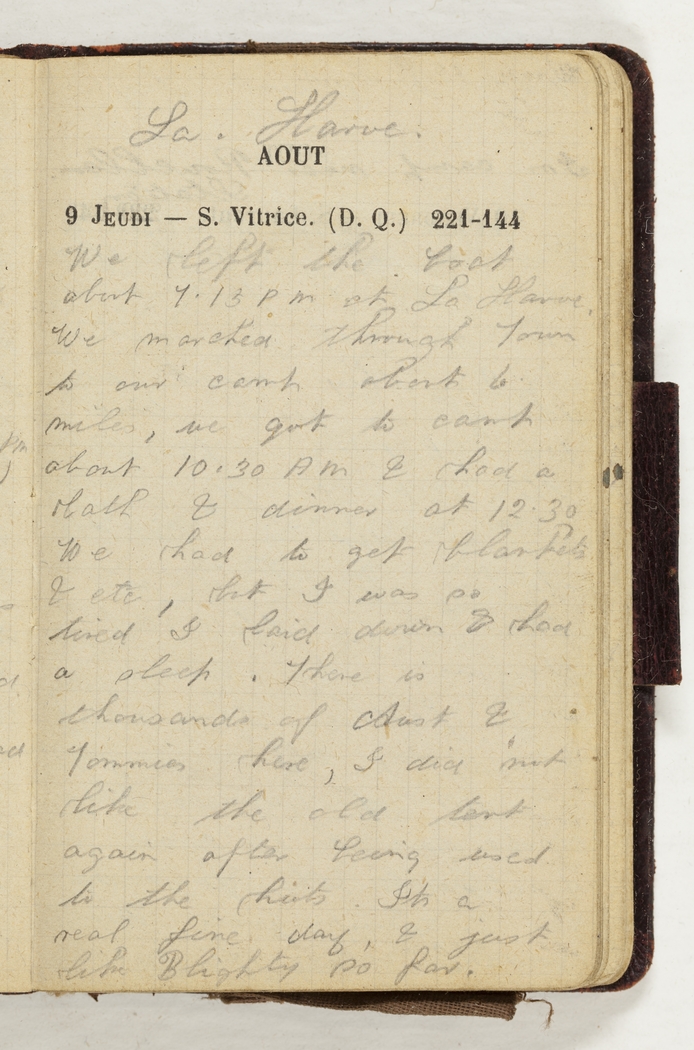 La. Harve.
AOUT
9 JEUDI — S. Vitrice. (D. Q.) 221-144
We left the boat
about 7.15 P m at La Harve.
We marched through Town
to our camp about 6
miles, we got to camp
about 10.30 A m & had a
bath & dinner at 12.30
We had to get blankets
& etc, but I was so
tired I laid down & had
a sleep. There is
thousands of Aust &
Tommies here, I did not
like the old tent
again after being used
to the huts. Its a
real fine day, & just
like Blighty so far.